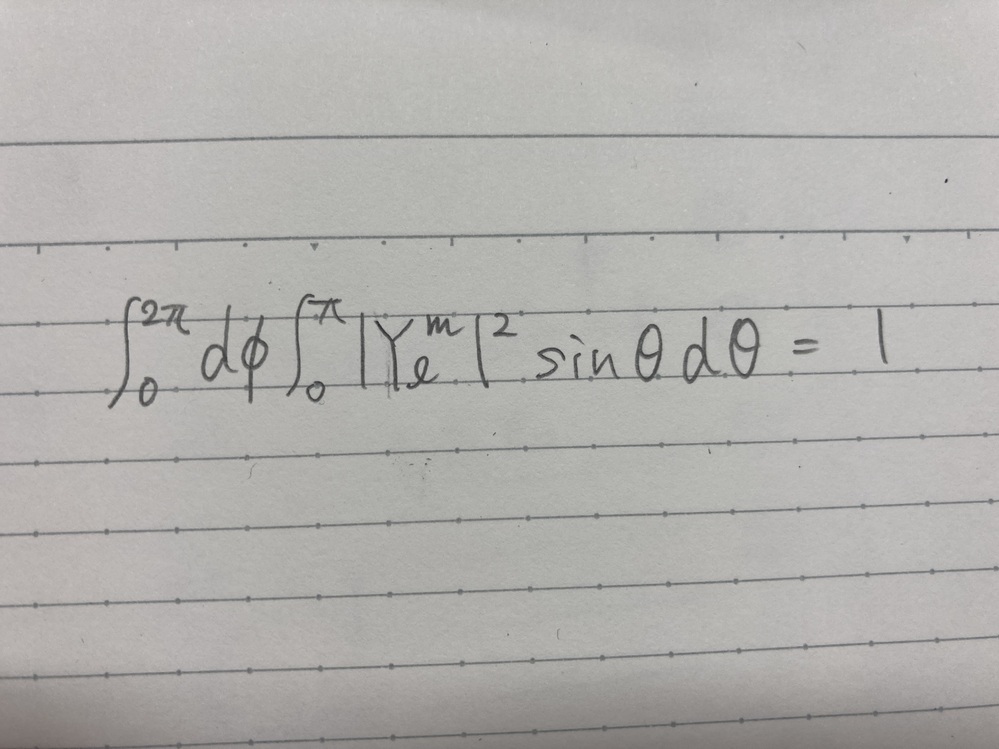 ∫₀^{2π} dϕ ∫₀^π |Yₗᵐ|² sin θ dθ = 1